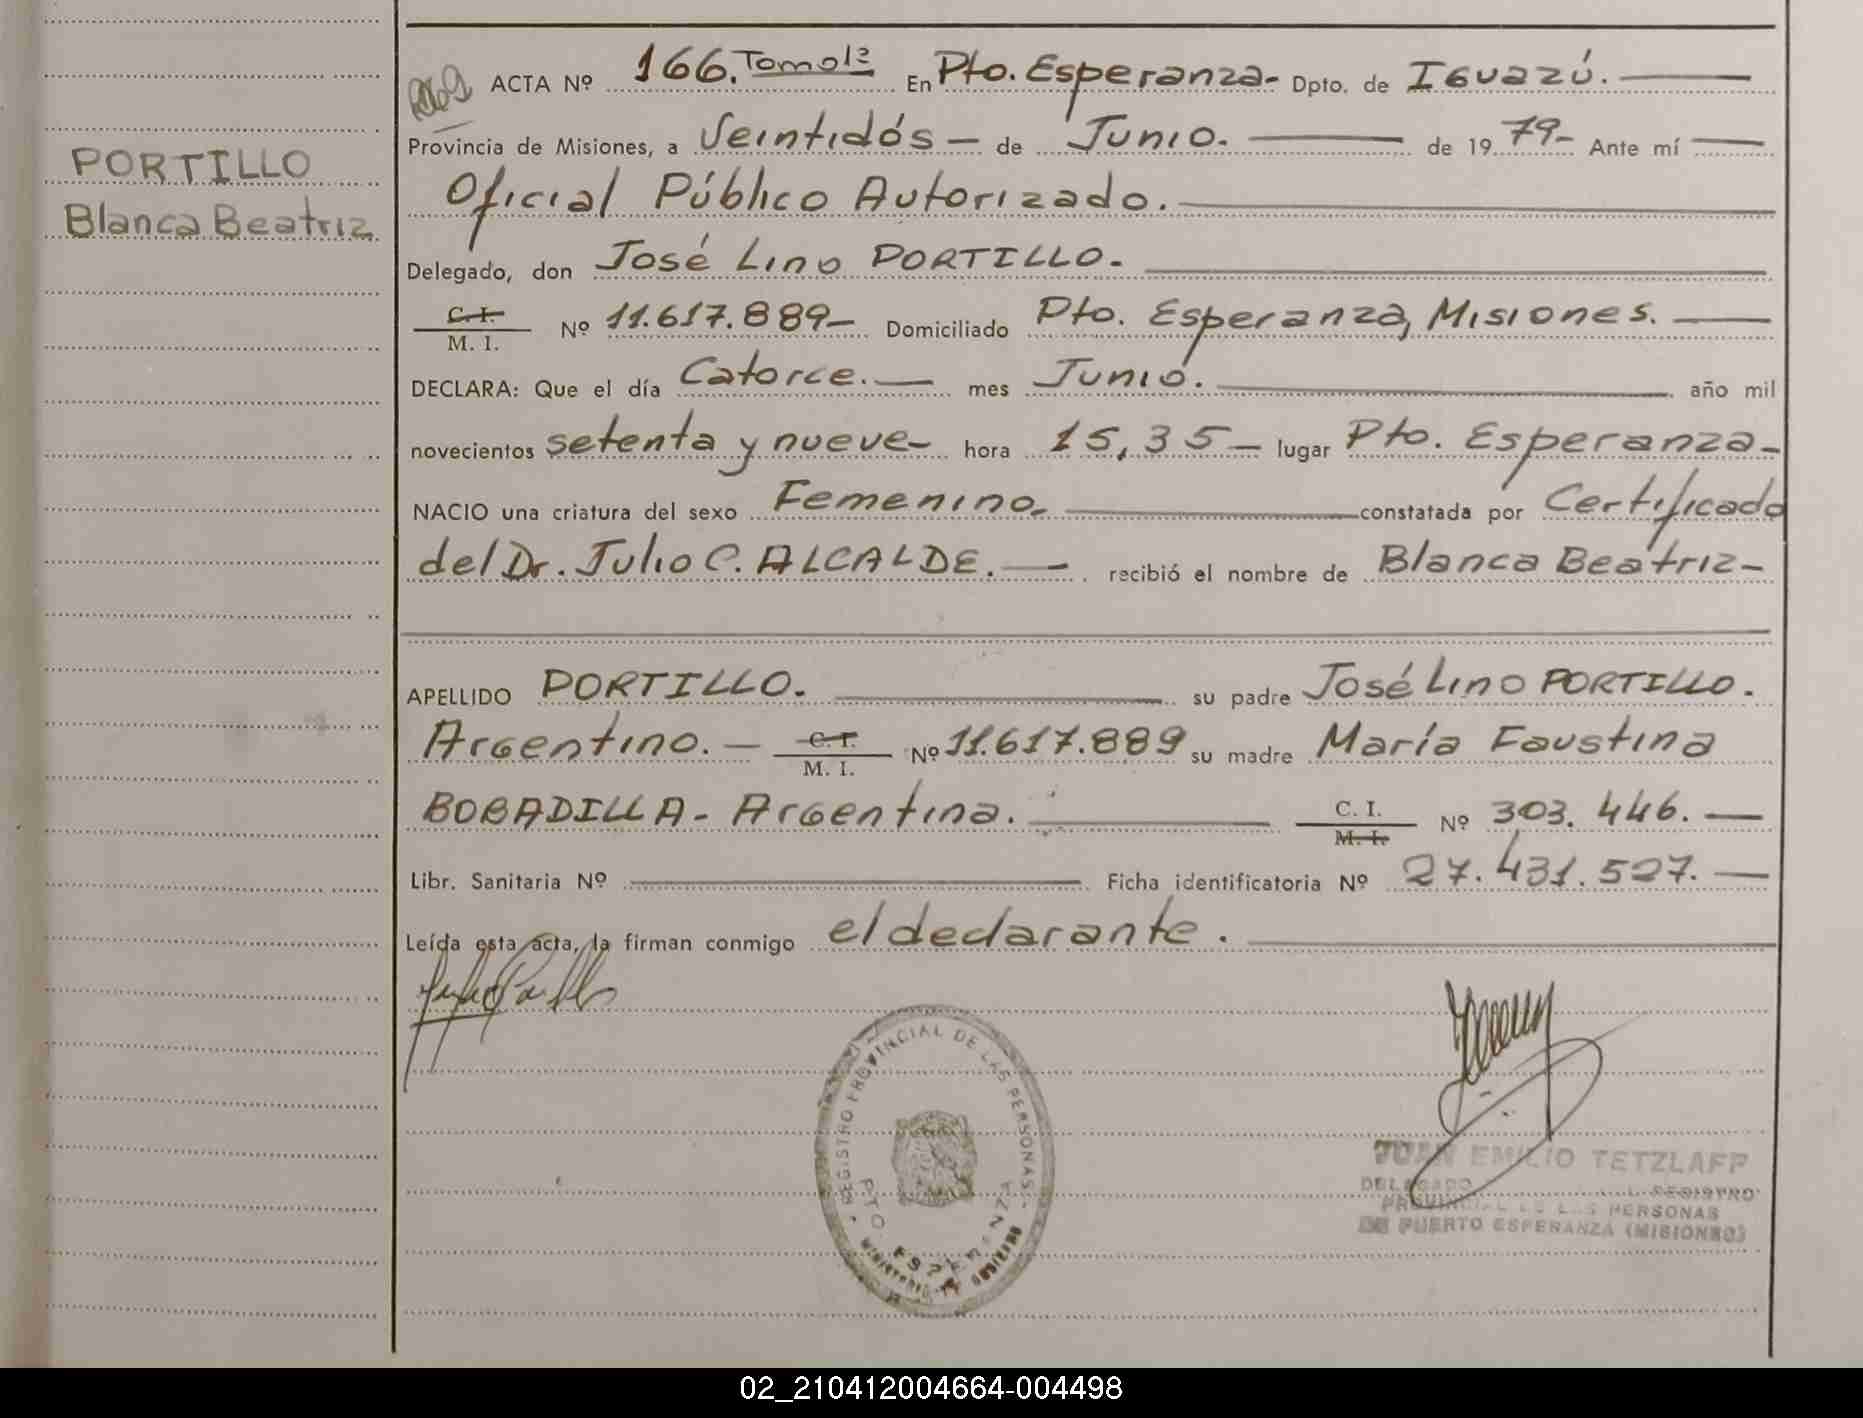 PORTILLO
Blanca Beatriz
ACTA Nº 166. Tomo 1º En Pto. Esperanza- Dpto. de Iguazú.
Provincia de Misiones, a Veintidós - de Junio. de 1979- Ante mí
Oficial Público Autorizado.
Delegado, don José Lino PORTILLO.
C. I.
M. I. Nº 11.617.889- Domiciliado Pto. Esperanza, Misiones.
DECLARA: Que el día Catorce. mes Junio. año mil
novecientos setenta y nueve- hora 15,35- lugar Pto. Esperanza-
NACIO una criatura del sexo Femenino. constatada por Certificado
del Dr. Julio C. ALCALDE. recibió el nombre de Blanca Beatriz-
APELLIDO PORTILLO. su padre José Lino PORTILLO.
Argentino. - C. I. M. I. Nº 11.617.889 su madre María Faustina
BOBADILLA- Argentina. C. I. M. I. Nº 303.446.
Libr. Sanitaria Nº Ficha identificatoria Nº 27.431.527.
Leída esta acta, la firman conmigo el declarante.
REGISTRO PROVINCIAL DE LAS PERSONAS
PTO ESPERANZA
JUAN EMILIO TETZLAFF
DELEGADO REGISTRO
PROVINCIAL DE LAS PERSONAS
DE PUERTO ESPERANZA (MISIONES)
02_210412004664-004498